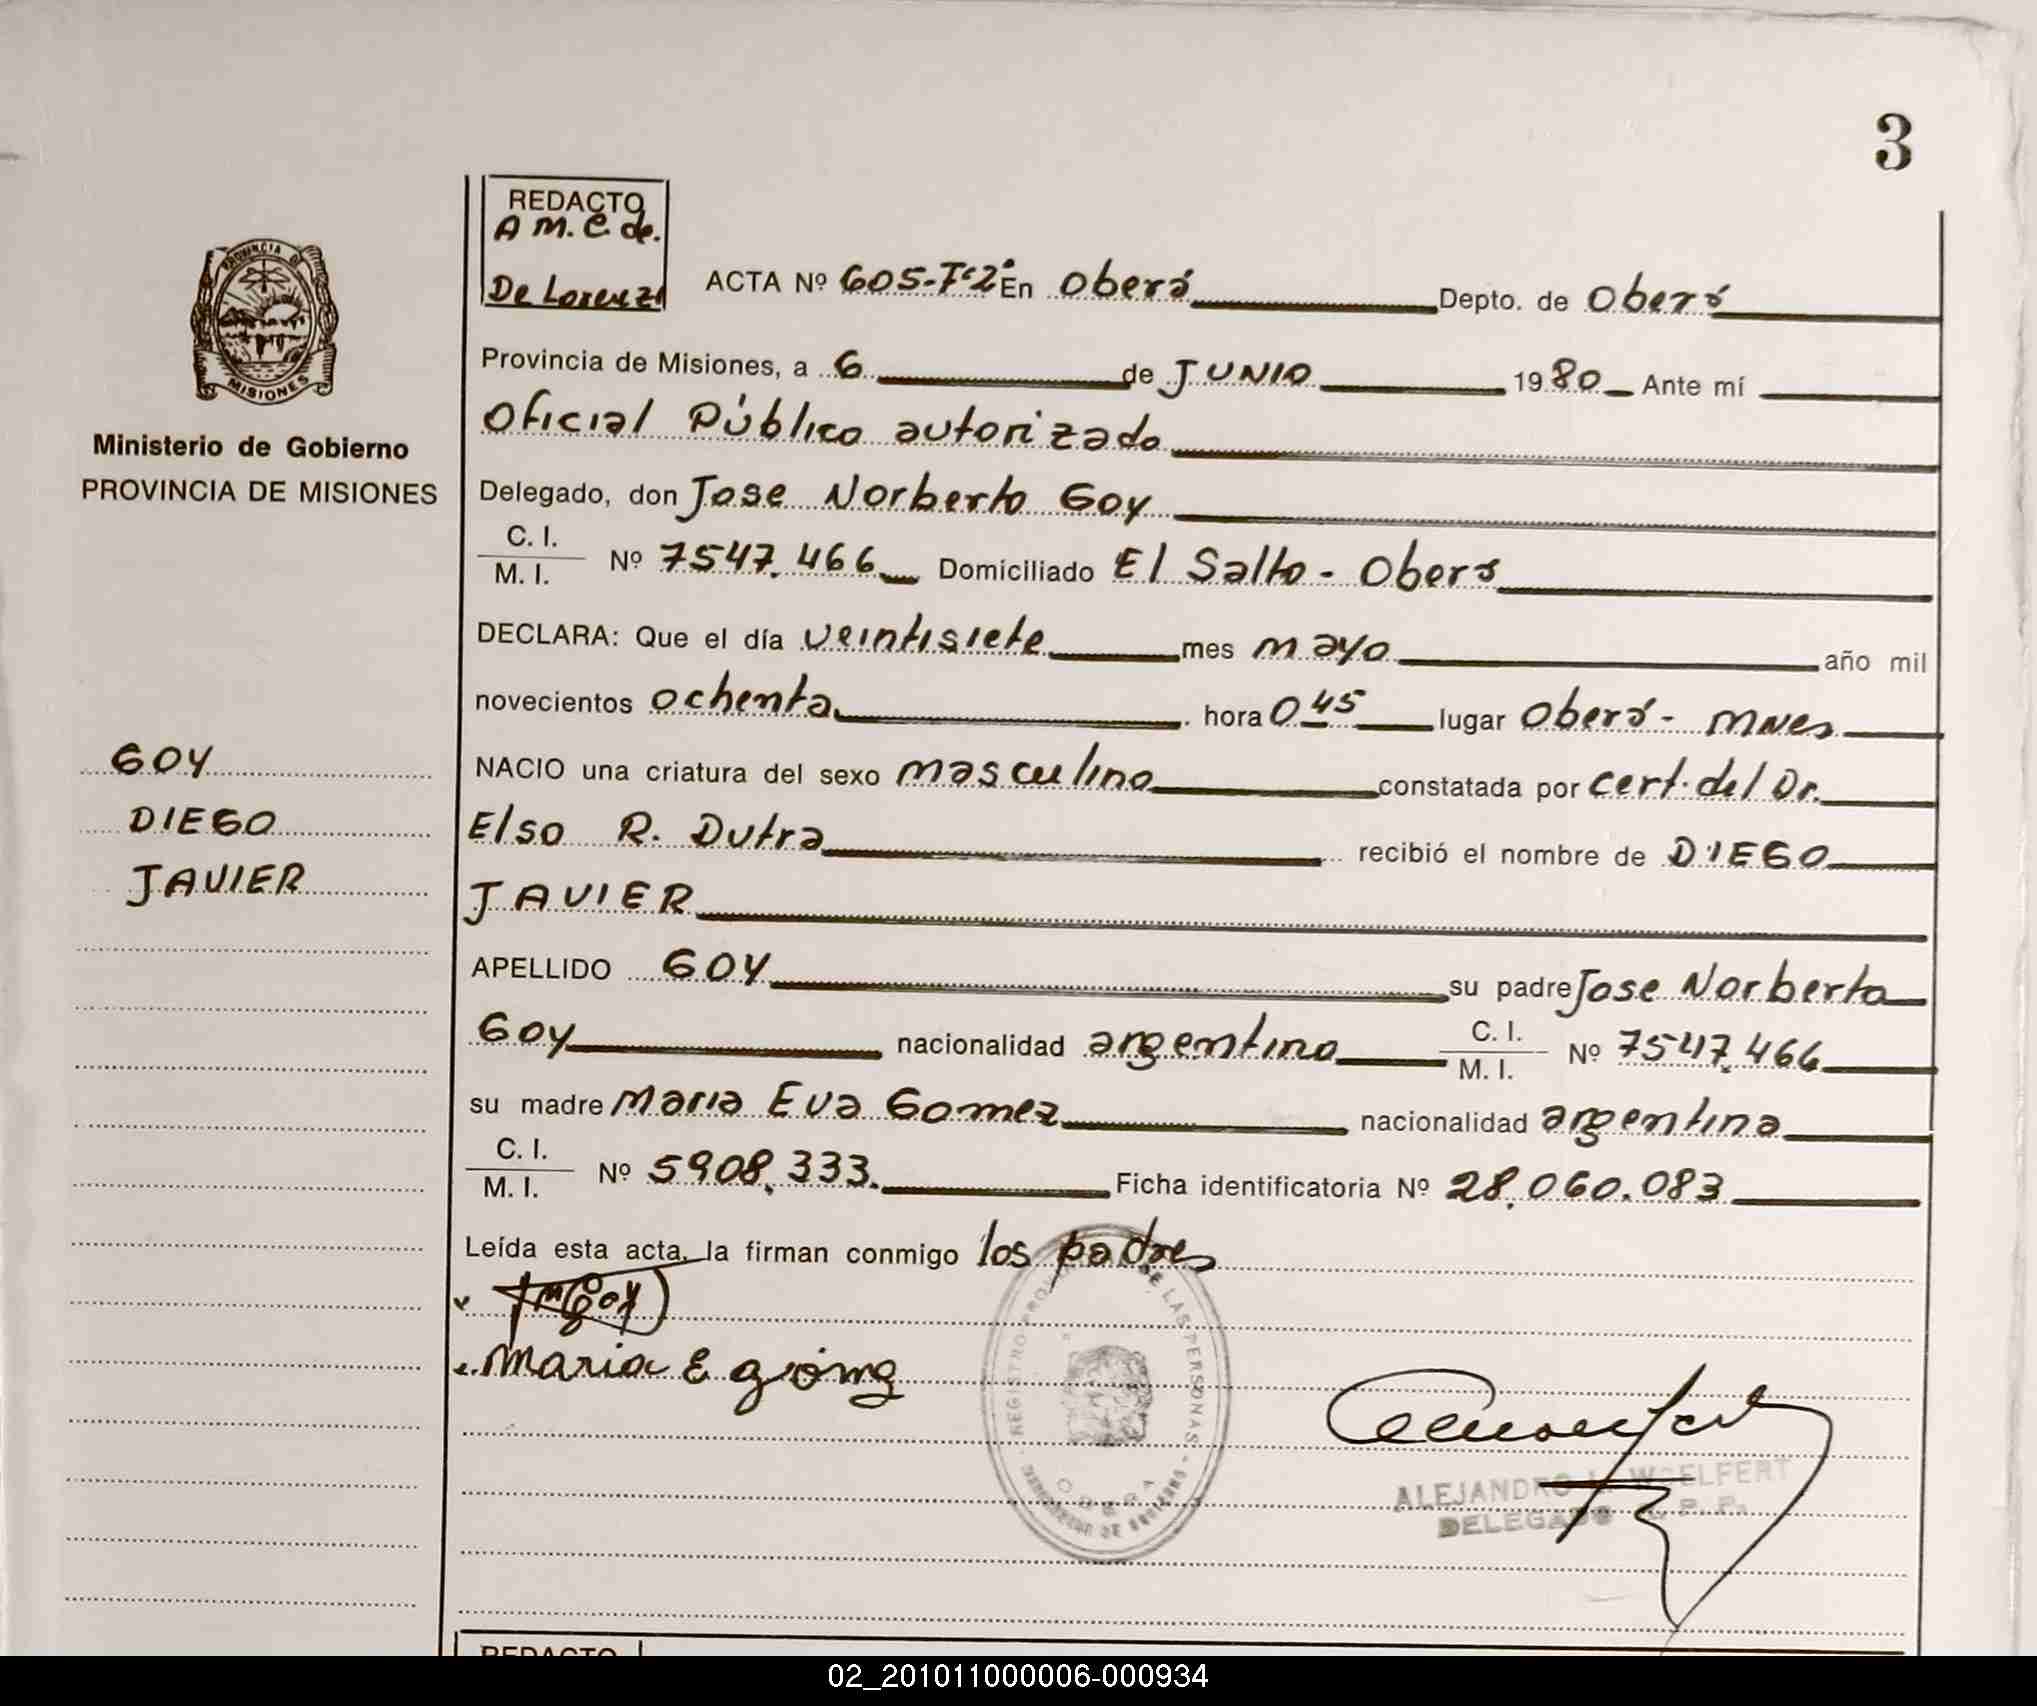 3
REDACTO
A M. C. de.
De Lorenzi
ACTA Nº 605-Tº2º En Oberá Depto. de Oberá
PROVINCIA DE
MISIONES
Provincia de Misiones, a 6 de JUNIO 1980 Ante mí
Oficial Público autorizado
Ministerio de Gobierno
PROVINCIA DE MISIONES
Delegado, don Jose Norberto Goy
C. I.
M. I. Nº 7547.466 Domiciliado El Salto - Oberá
DECLARA: Que el día veintisiete mes mayo año mil
novecientos ochenta hora 0 45 lugar Oberá - Mnes
GOY
NACIO una criatura del sexo masculino constatada por cert. del Dr.
DIEGO
Elso R. Dutra recibió el nombre de DIEGO
JAVIER
JAVIER
APELLIDO GOY su padre Jose Norberto
Goy nacionalidad argentina C. I.
M. I. Nº 7547.466
su madre Maria Eva Gomez nacionalidad argentina
C. I.
M. I. Nº 5908.333. Ficha identificatoria Nº 28.060.083
Leída esta acta, la firman conmigo los padres
Maria E
REGISTRO PROVINCIAL DE LAS PERSONAS
OBERA
ALEJANDRO L. WOELFERT
DELEGADO R. P. P.
REDACTO
02_201011000006-000934